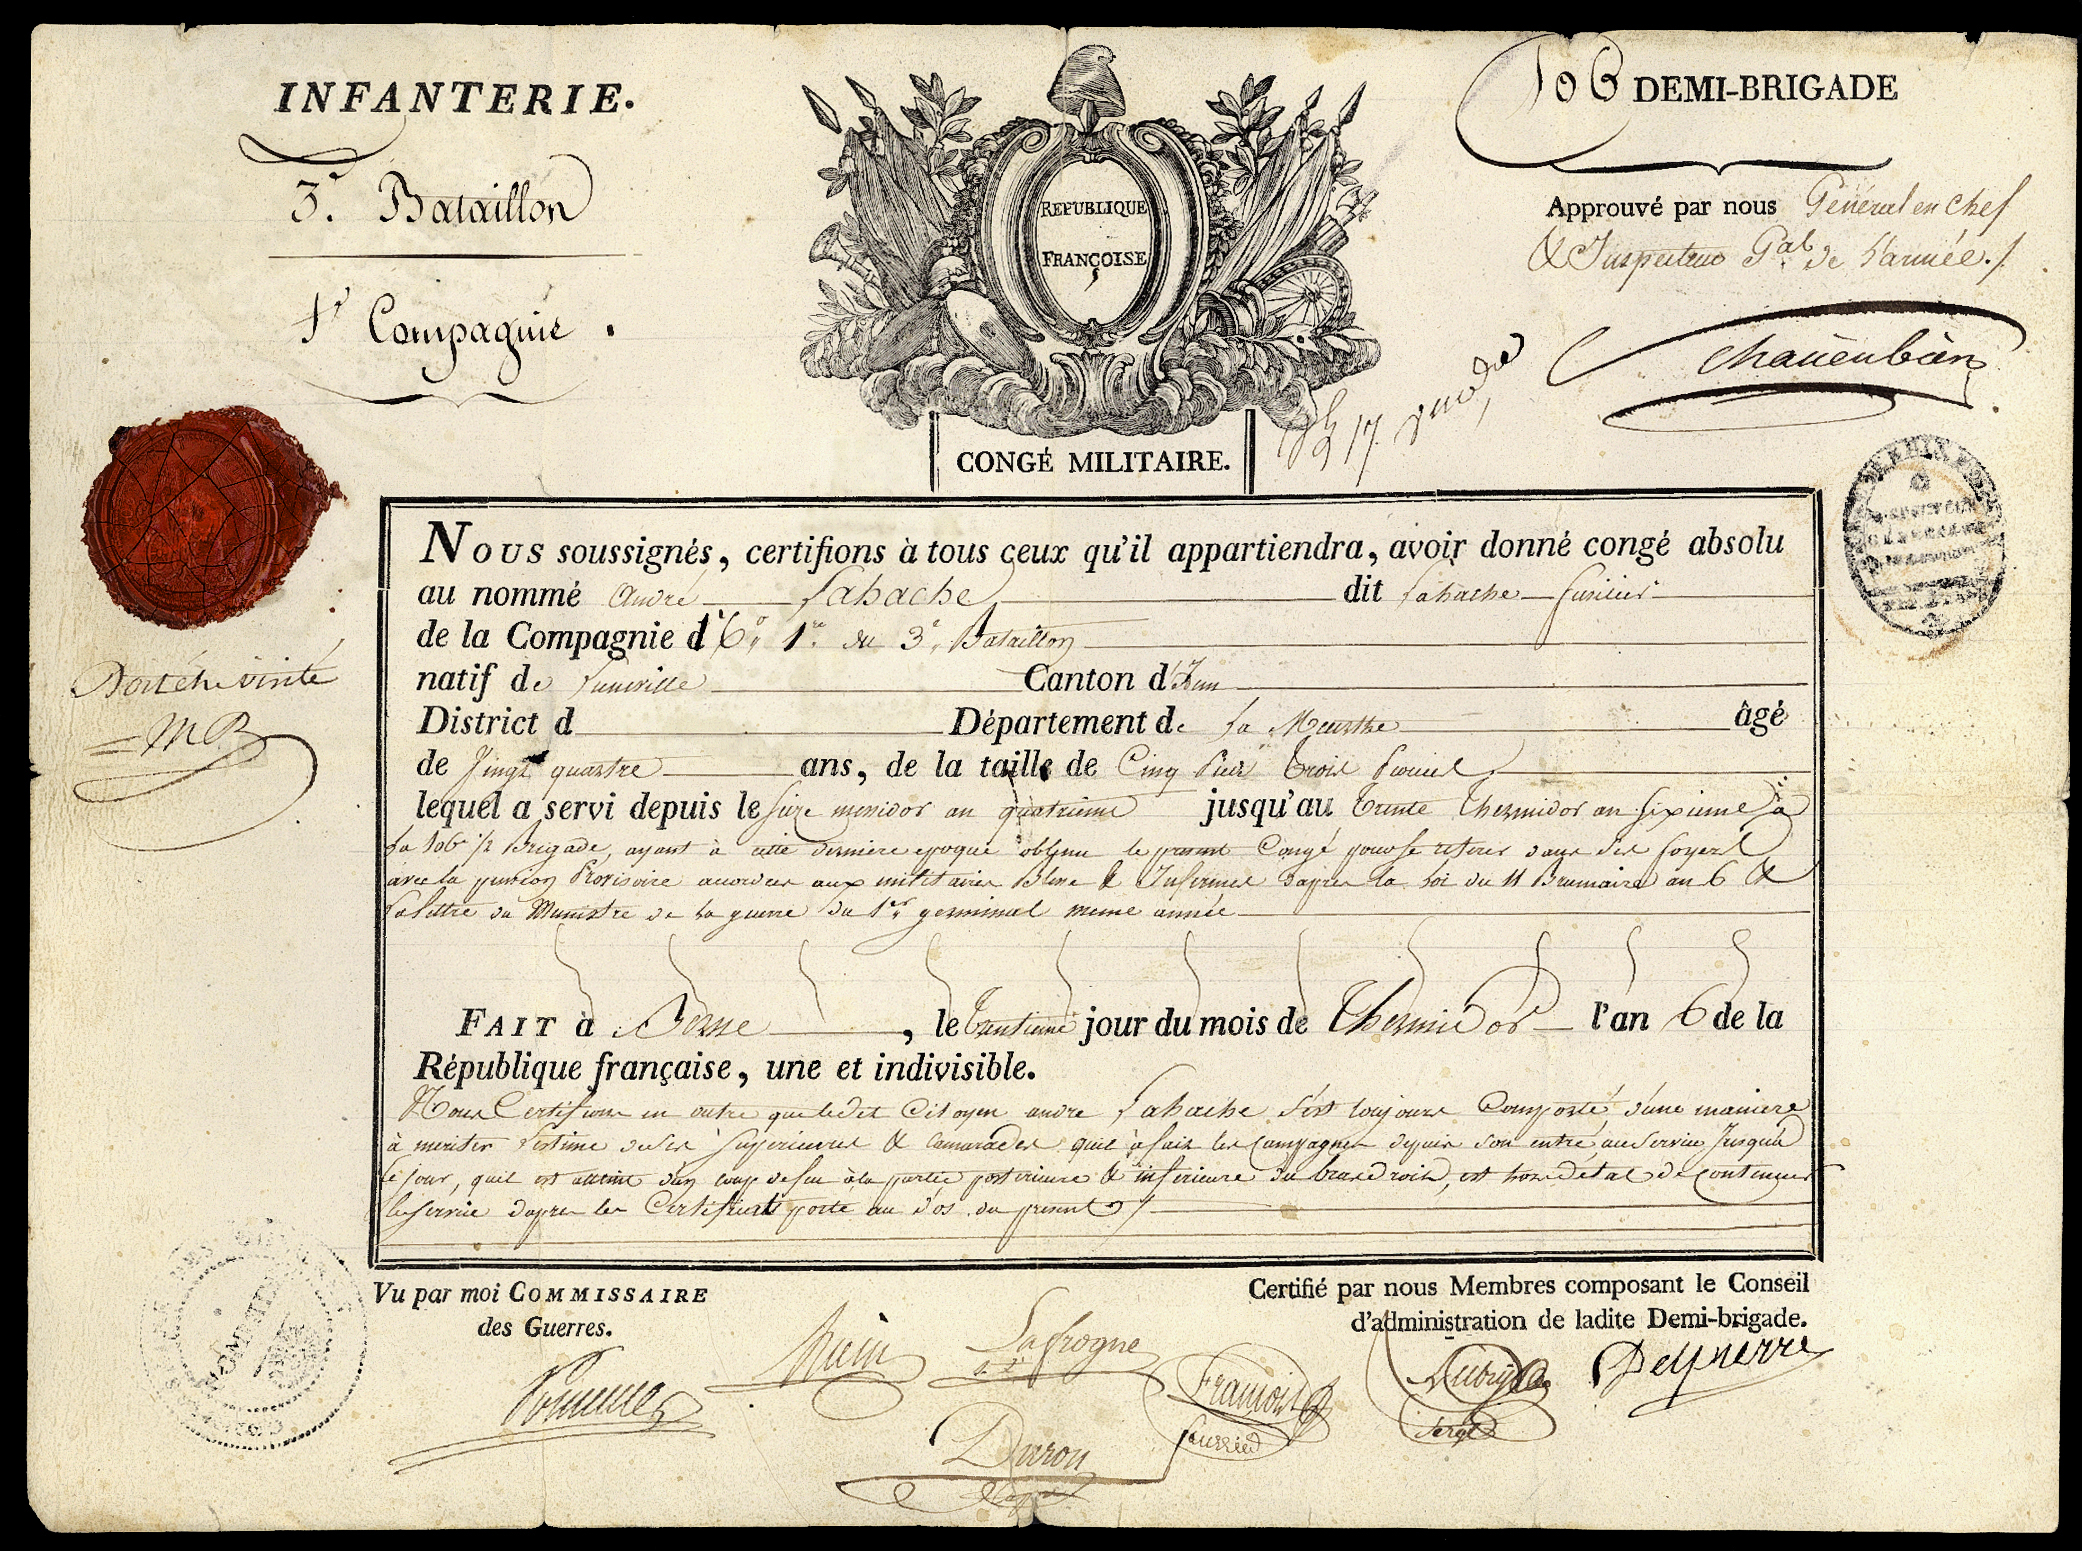 INFANTERIE.
106 DEMI-BRIGADE
3e. Bataillon
1e Compagnie.
REPUBLIQUE
FRANÇOISE
Approuvé par nous Général en Chef
& Inspecteur Gal. de l'armée./.
Schauenbürg
17
CONGÉ MILITAIRE.
Nous soussignés, certifions à tous ceux qu'il appartiendra, avoir donné congé absolu
au nommé André Lahache dit Lahache fusilier
de la Compagnie d 1re. du 3e. Bataillon
natif de Luneville Canton d'Idem
District d Département de la Meurthe âgé
de Vingt quatre ans, de la taille de Cinq Pieds trois Pouces
lequel a servi depuis le seize messidor an quatrieme jusqu'au trente Thermidor an sixieme à
la 106e 1/2 Brigade, ayant à cette derniere epoque obtenu le present Congé pour se retirer dans ses foyers
avec la pension Provisoire accordée aux militaires Blessé & Infirmes d'apres la Loi du 11 Brumaire an 6 &
la lettre du Ministre de la guerre du 1er germinal meme année
FAIT à Berne, le trentieme jour du mois de Thermidor l'an 6 de la
République française, une et indivisible.
Nous Certifions en outre que ledit Citoyen andre Lahache s'est toujours Comporté d'une maniere
à meriter l'estime de ses Superieures & Camarades quil a fait les Campagnes depuis son entré au Service Jusqu'à
ce Jour, quil est atteint d'un coup de feu à la partie posterieure & inferieure du bras droit, est hors d'état de Continuer
le Service d'apres les Certificats porté au d'os du present ./.
MB
Vu par moi COMMISSAIRE
des Guerres.
Certifié par nous Membres composant le Conseil
d'administration de ladite Demi-brigade.
Lafrogne
Francois
fourrier
Duron
Sergt
Delpierre